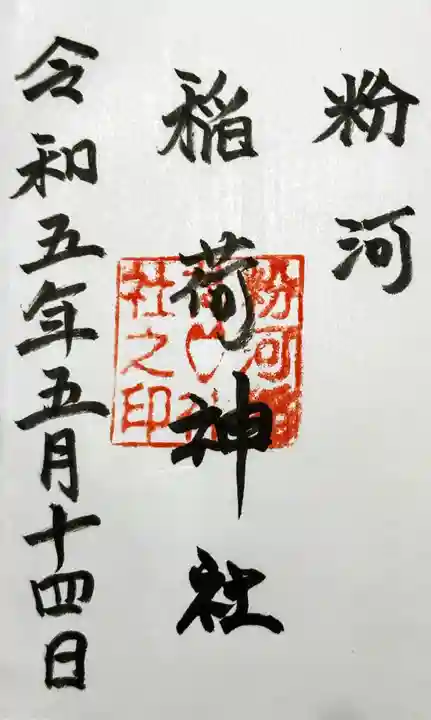 粉河
稲荷神社
令和五年五月十四日
粉河
社之印